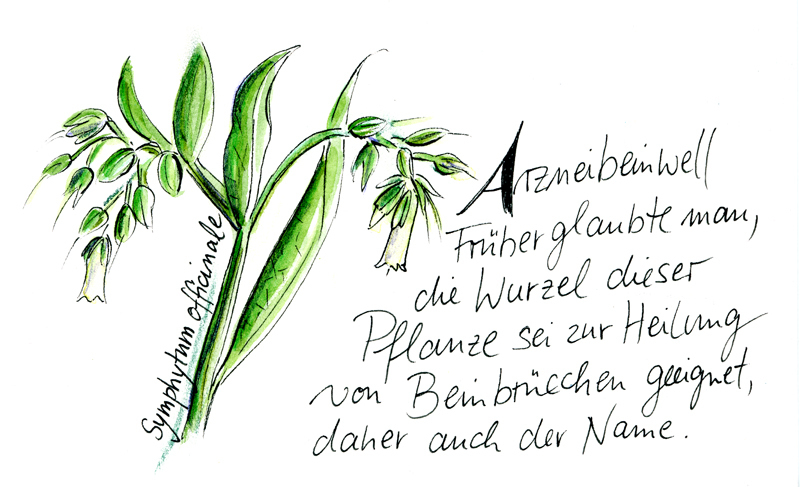 Symphytum officinale
Arzneibeinwell
Früher glaubte man,
die Wurzel dieser
Pflanze sei zur Heilung
von Beinbrücchen geeignet,
daher auch der Name.